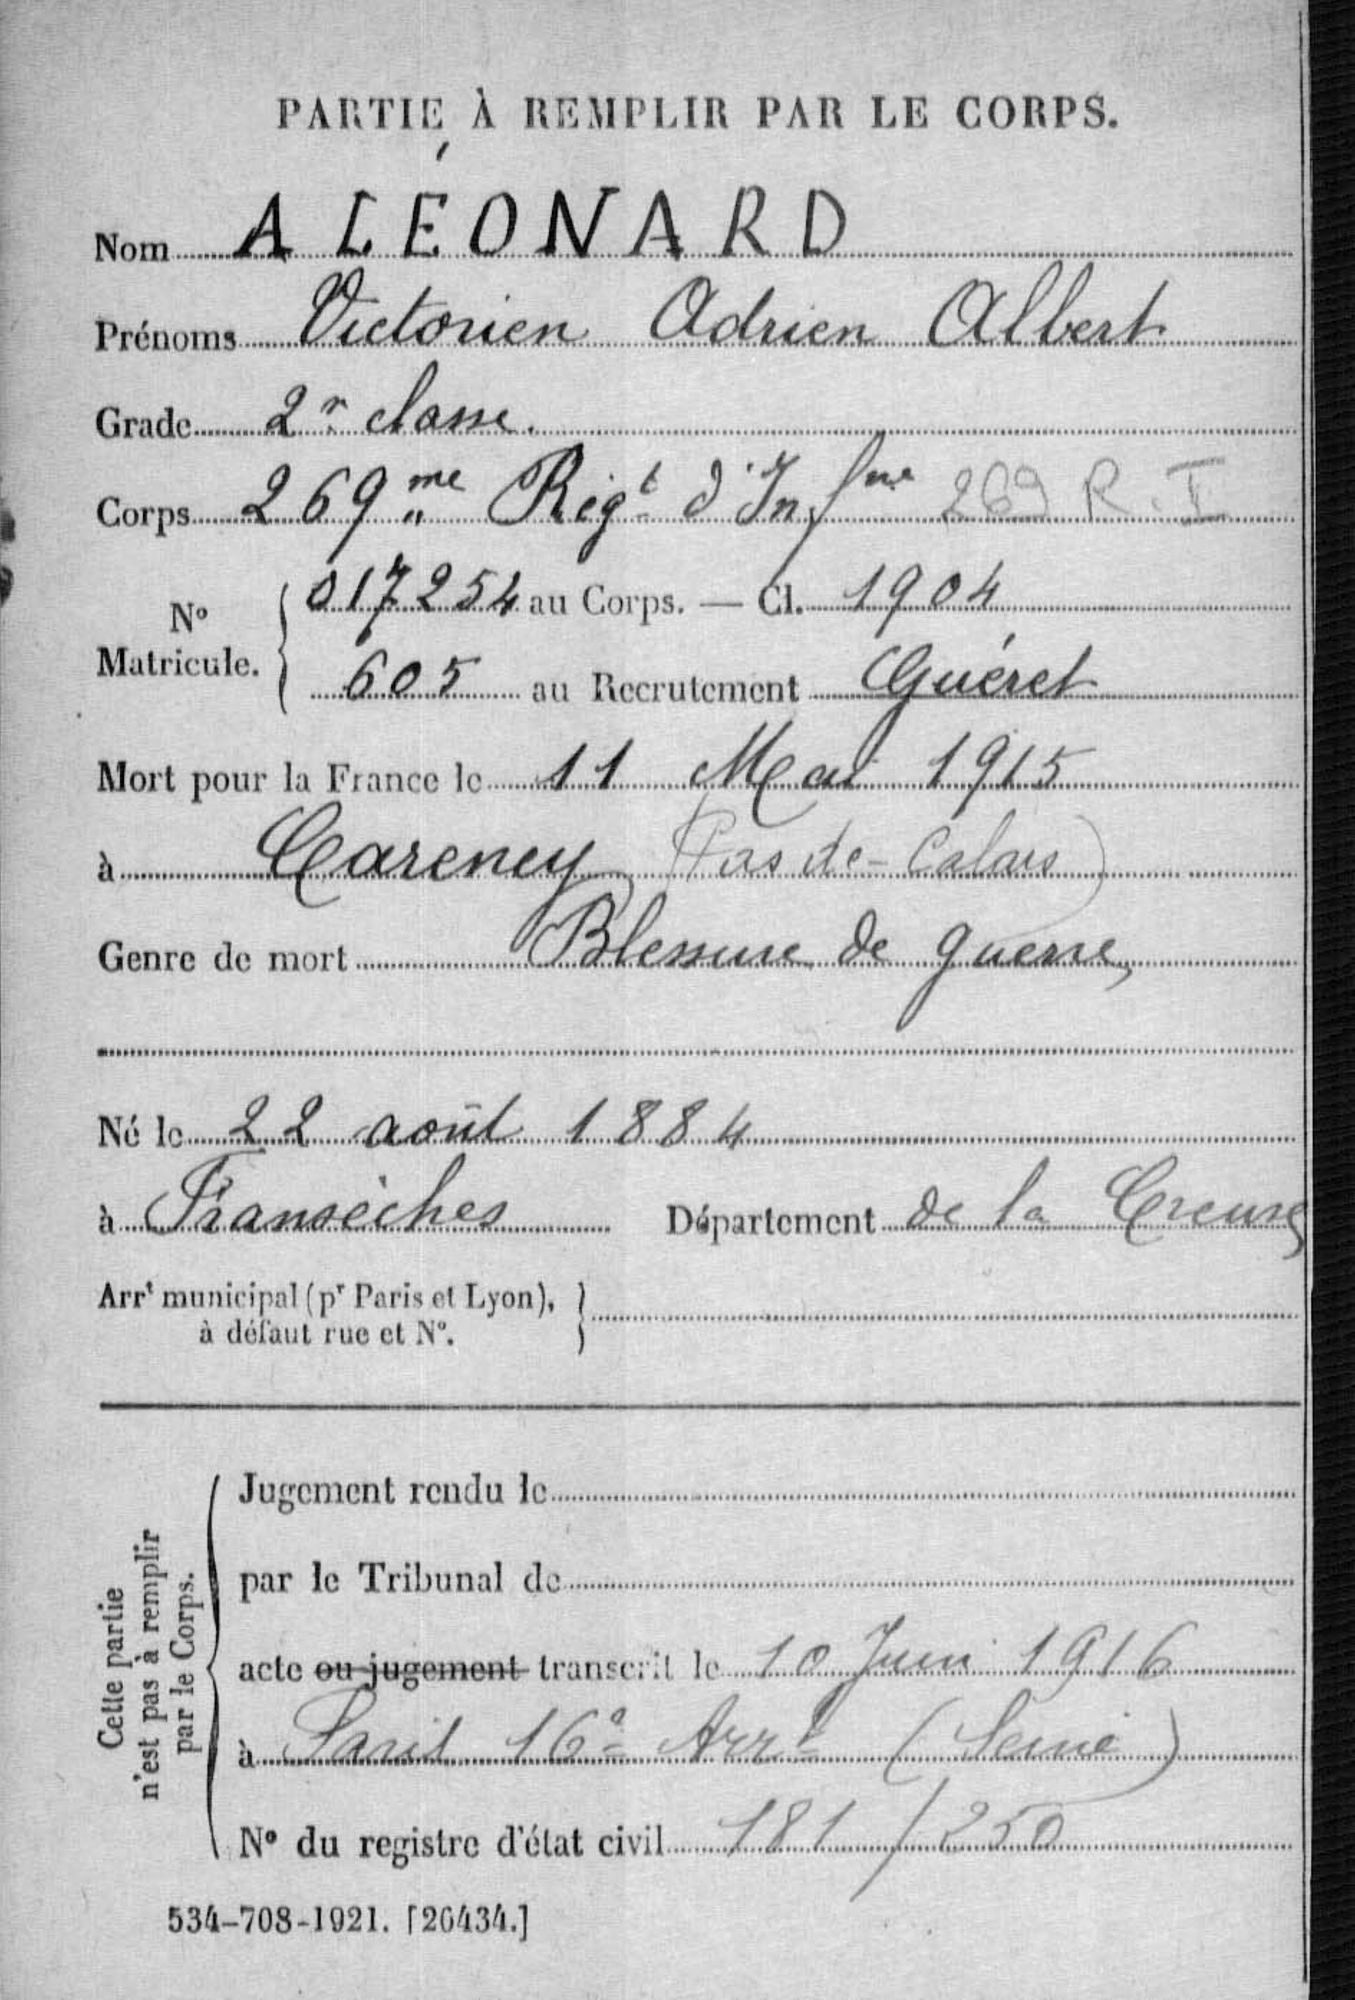 PARTIE À REMPLIR PAR LE CORPS.
Nom ALÉONARD
Prénoms Victorien Adrien Albert
Grade 2e classe.
Corps 269me Régt d'Infrie 269 R. I
No Matricule. { 017254 au Corps. — Cl. 1904
605 au Recrutement Guéret
Mort pour la France le 11 Mai 1915
à Carency (Pas de-Calais)
Genre de mort Blessure de guerre
Né le 22 août 1884
à Fransèches Département de la Creuse
Arrt municipal (pr Paris et Lyon), }
à défaut rue et No.
Cette partie
n'est pas à remplir
par le Corps.
Jugement rendu le
par le Tribunal de
acte ou jugement transcrit le 10 Juin 1916
à Paris 16e Arrt (Seine)
No du registre d'état civil 181/250
534-708-1921. [26434.]